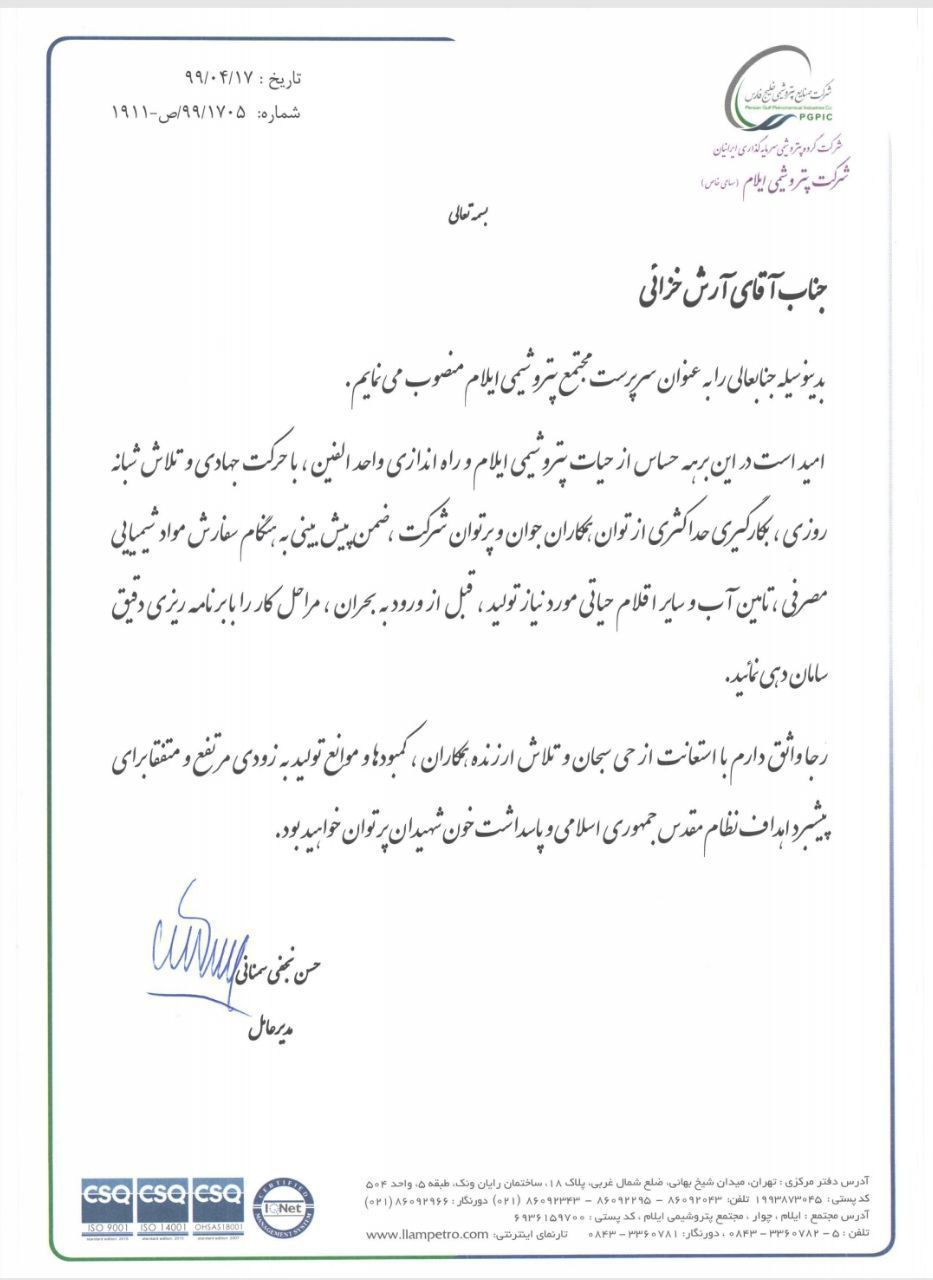 تاریخ : ۹۹/۰۴/۱۷
شماره: ۹۹/۱۷۰۵/ص-۱۹۱۱
شرکت صنایع پتروشیمی خلیج فارس
Persian Gulf Petrochemical Industries Co.
PGPIC
شرکت گروه پتروشیمی سرمایه گذاری ایرانیان
شرکت پتروشیمی ایلام (سهامی خاص)
بسمه تعالی
جناب آقای آرش خزائی
بدینوسیله جنابعالی را به عنوان سرپرست مجتمع پتروشیمی ایلام منصوب می نمایم .
امید است در این برهه حساس از حیات پتروشیمی ایلام و راه اندازی واحد الفین ، با حرکت جهادی و تلاش شبانه
روزی ، بکارگیری حداکثری از توان همکاران جوان و پرتوان شرکت ، ضمن پیش بینی به هنگام سفارش مواد شیمیایی
مصرفی ، تامین آب و سایر اقلام حیاتی مورد نیاز تولید ، قبل از ورود به بحران ، مراحل کار را با برنامه ریزی دقیق
سامان دهی نمائید.
رجا واثق دارم با استعانت از حی سبحان و تلاش ارزنده همکاران ، کمبودها و موانع تولید به زودی مرتفع و متفقا برای
پیشبرد اهداف نظام مقدس جمهوری اسلامی و پاسداشت خون شهیدان پرتوان خواهید بود.
حسن نجفی سمنانی
مدیرعامل
CSQ CSQ CSQ
ISO 9001 ISO 14001 OHSAS18001
standard edition: 2015 standard edition: 2015 standard edition: 2007
CERTIFIED
IQNet
MANAGEMENT SYSTEM
آدرس دفتر مرکزی : تهران، میدان شیخ بهائی، ضلع شمال غربی، پلاک ۱۸، ساختمان رایان ونک، طبقه ۵، واحد ۵۰۴
کد پستی : ۱۹۹۳۸۷۳۰۴۵ تلفن: ۸۶۰۹۲۰۴۳ - ۸۶۰۹۲۲۹۵ - ۸۶۰۹۲۳۴۳ (۰۲۱) دورنگار : ۸۶۰۹۲۹۶۶ (۰۲۱)
آدرس مجتمع : ایلام ، چوار ، مجتمع پتروشیمی ایلام ، کد پستی : ۶۹۳۶۱۵۹۷۰۰
تلفن : ۵ - ۳۳۶۰۷۸۲ - ۰۸۴۳ ، دورنگار: ۳۳۶۰۷۸۱ - ۰۸۴۳ تارنمای اینترنتی: www.Ilampetro.com